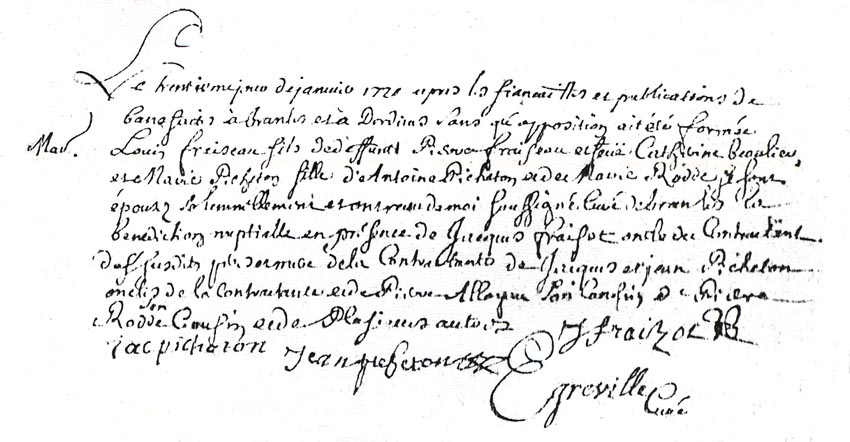 Le trentieme jour de janvier 1720 apres les fiancailles et publications de
bans faites à brantes et à Dordins sans qu'opposition ait été formée
Mar. Louis freseau fils de deffunt Pierre fraiseau et feüe Catherine beaulieu
et Marie Picheton fille d'Antoine Picheton et de Marie Rodde se sont
épousez solemnellement et ont receu de moi soussigné Curé de brantes la
benediction nuptialle en présence de Jacques fraisot oncle du Contractant
de la Contractante de Jacques et jean Picheton
oncles de la contractante et de Pierre son Cousin et de Pierre
Rodde son Cousin et de Plusieurs autres J fraizot
jac picheton Jean picheton
Egreville Curé